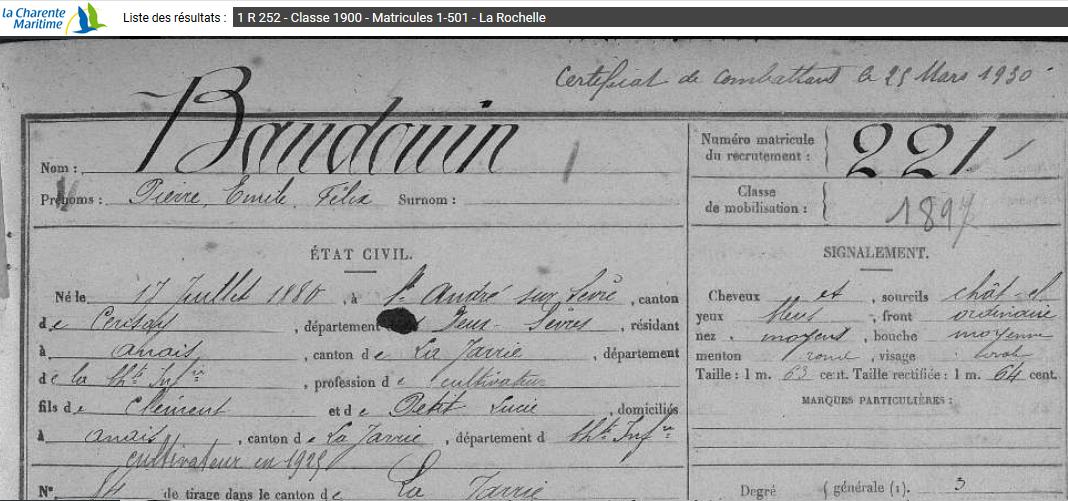 la Charente
Maritime
Liste des résultats : 1 R 252 - Classe 1900 - Matricules 1-501 - La Rochelle
Certificat de combattant le 25 Mars 1930
Nom : Baudouin
Prénoms : Pierre, Emile, Félix Surnom :
Numéro matricule
du recrutement : 221
Classe
de mobilisation : 1897
ÉTAT CIVIL.
Né le 17 Juillet 1880, à St André sur Sèvre, canton
de Cerizay, département Deux-Sèvres, résidant
à Anais, canton de La Jarrie, département
de la Chte Infre, profession de cultivateur
fils de Clément et de Petit Lucie, domiciliés
à Anais, canton de La Jarrie, département d Chte Infre
cultivateur en 1925
No 54 de tirage dans le canton de La Jarrie
SIGNALEMENT.
Cheveux et, sourcils chât-cl
yeux bleus, front ordinaire
nez moyens, bouche moyenne
menton rond, visage
Taille : 1 m. 63 cent. Taille rectifiée : 1 m. 64 cent.
MARQUES PARTICULIÈRES :
Degré générale (1). 3